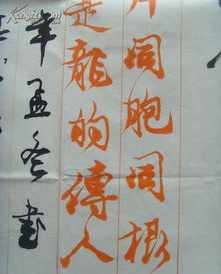 同胞同根
是龍的傳人
年孟冬書